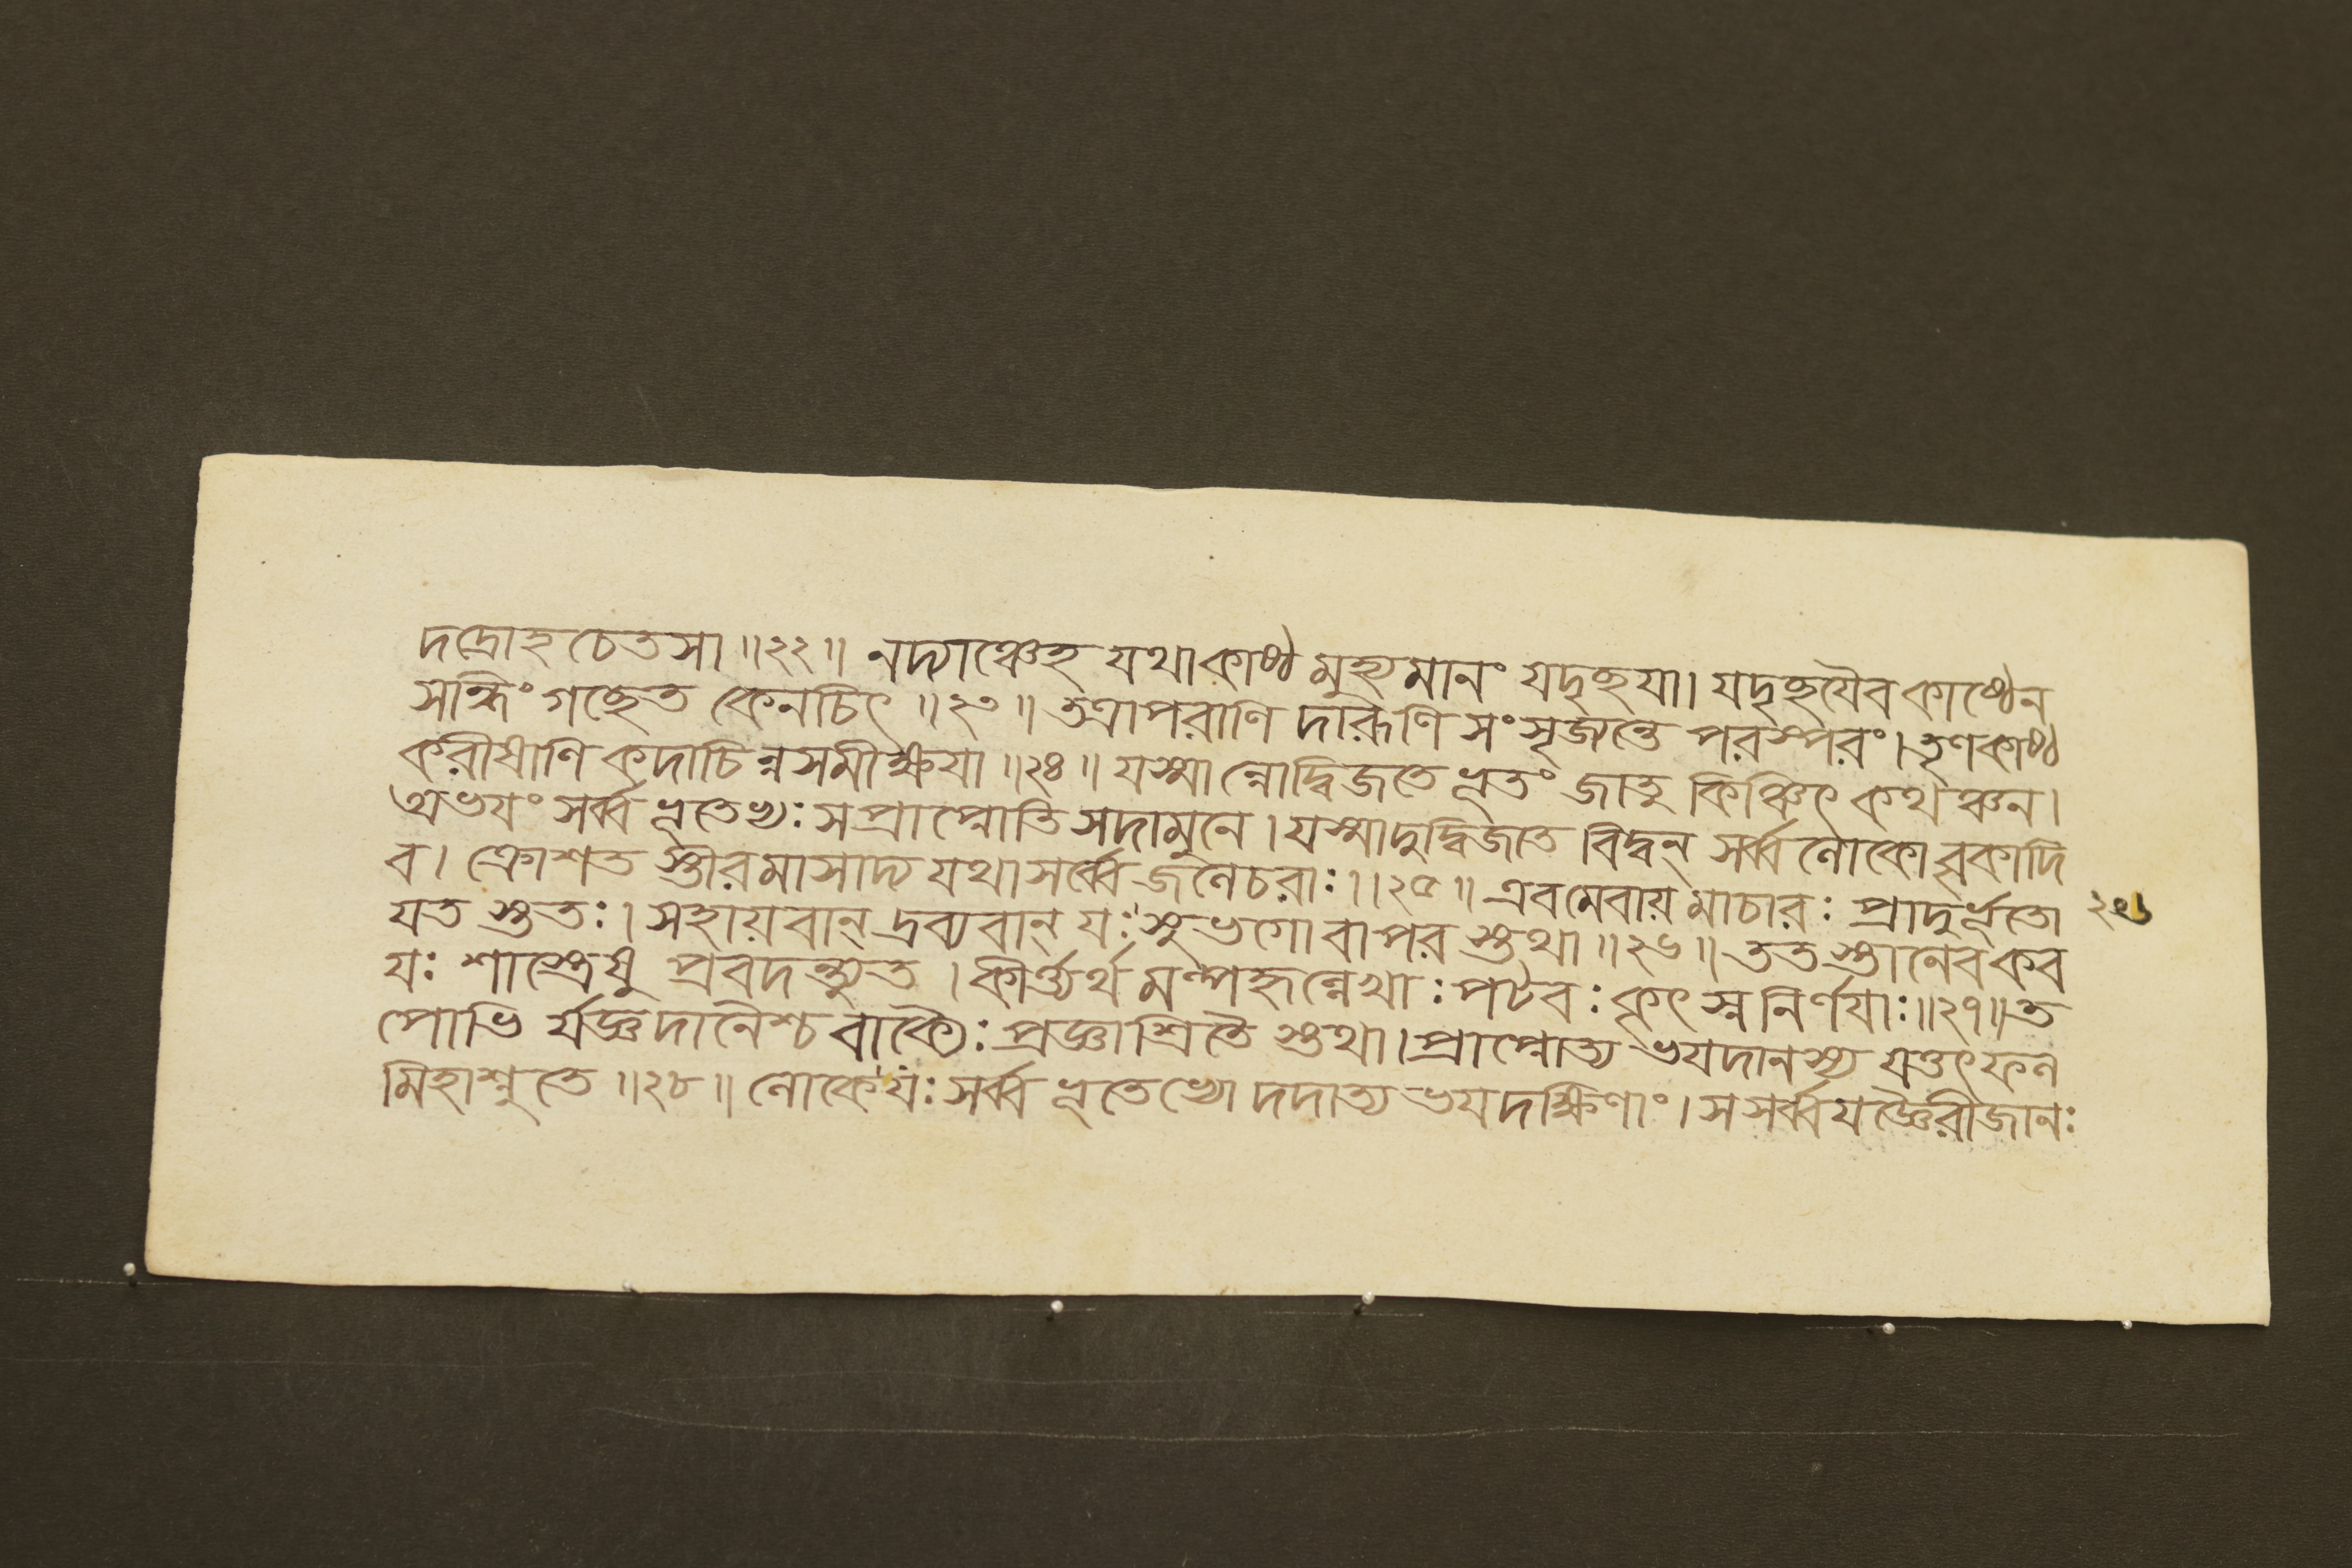 দদ্রোহ চেতসা ॥২২॥ নদ্যাঞ্চেহ যথাকাষ্ঠ মুহ্যমানং যদৃচ্ছয়া। যদৃচ্ছয়ৈব কাষ্ঠেন
সন্ধিং গচ্ছেত কেনচিৎ ॥২৩॥ তত্রাপরাণি দারূণি সংসৃজ্যন্তে পরস্পরং। তৃণকাষ্ঠ
করীষাণি কদাচিন্নসমীক্ষয়া ॥২৪॥ যস্মান্নোদ্বিজতে ভূতং জাতু কিঞ্চিৎ কথঞ্চন।
অভয়ং সর্ব্বভূতেভ্যঃ সপ্রাপ্নোতি সদামুনে। যস্মাদুদ্বিজতে বিদ্বন্ সর্ব্বলোকোবৃকাদি
ব। ক্রোশত স্তীরমাসাদ্য যথাসর্ব্বে জলেচরাঃ।॥২৫॥ এবমেবায় মাচারঃ প্রাদুর্ভূতো ২৬
যত স্ততঃ। সহায়বান্ দ্রব্যবান্ যঃ সুভগোবাপর স্তথা ॥২৬॥ তত স্তানেব কব
যঃ শাস্ত্রেষু প্রবদন্ত্যুত। কীর্ত্ত্যর্থ মল্পহৃল্লেখাঃ পটবঃ কৃৎস্ননির্ণয়াঃ॥২৭॥ত
পোভি র্যজ্ঞদানৈশ্চ বাক্যৈঃ প্রজ্ঞাশ্রিতৈ স্তথা। প্রাপ্নোত্য ভয়দানস্য যত্তৎফল
মিহাশ্নুতে ॥২৮॥ লোকেযঃ সর্ব্বভূতেভ্যো দদাত্য ভয়দক্ষিণাং। সসর্ব্বযজ্ঞৈরীজানঃ